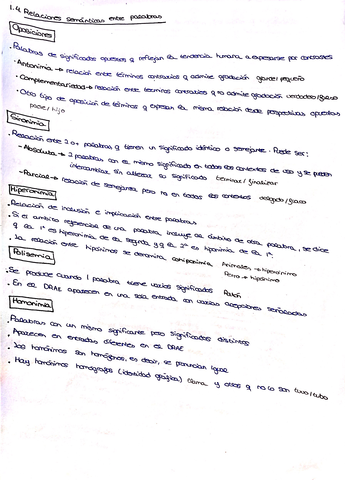 1.4. Relaciones semánticas entre palabras
Oposiciones
· Palabras de significados opuestos q reflejan la tendencia humana a expresarse por contrastes
- Antonimia → relación entre términos contrarios q admite gradación grande/pequeño
- Complementariedad → relación entre términos contrarios q no admite gradación verdadero/falso
· Otro tipo de oposición de términos q expresan la misma relación desde perspectivas opuestas
padre/hijo
Sinonimia
· Relación entre 2 o + palabras q tienen un significado idéntico o semejante. Puede ser:
- Absoluta → 2 palabras con el mismo significado en todos los contextos de uso y se pueden
intercambiar sin alterar su significado terminar/finalizar
- Parcial → relación de semejanza pero no en todos los contextos delgado/flaco
Hiperonimia
· Relación de inclusión e implicación entre palabras
· Si el ámbito referencial de una palabra, incluye al ámbito de otra palabra, se dice
q la 1ª es hiperonimia de la segunda y q la 2ª es hiponimia de la 1ª.
· La relación entre hipónimos se denomina cohiponimia Animales → hiperónimo
Perro → hipónimo
Polisemia
· Se produce cuando 1 palabra tiene varios significados Ratón
· En el DRAE aparecen en una sola entrada con varias acepciones señaladas
Homonimia
· Palabras con un mismo significante pero significados distintos
· Aparecen en entradas diferentes en el DRAE
· Los homónimos son homófonos, es decir, se pronuncian igual
· Hay homónimos homógrafos (identidad gráfica) llama y otros q no lo son tuvo/tubo